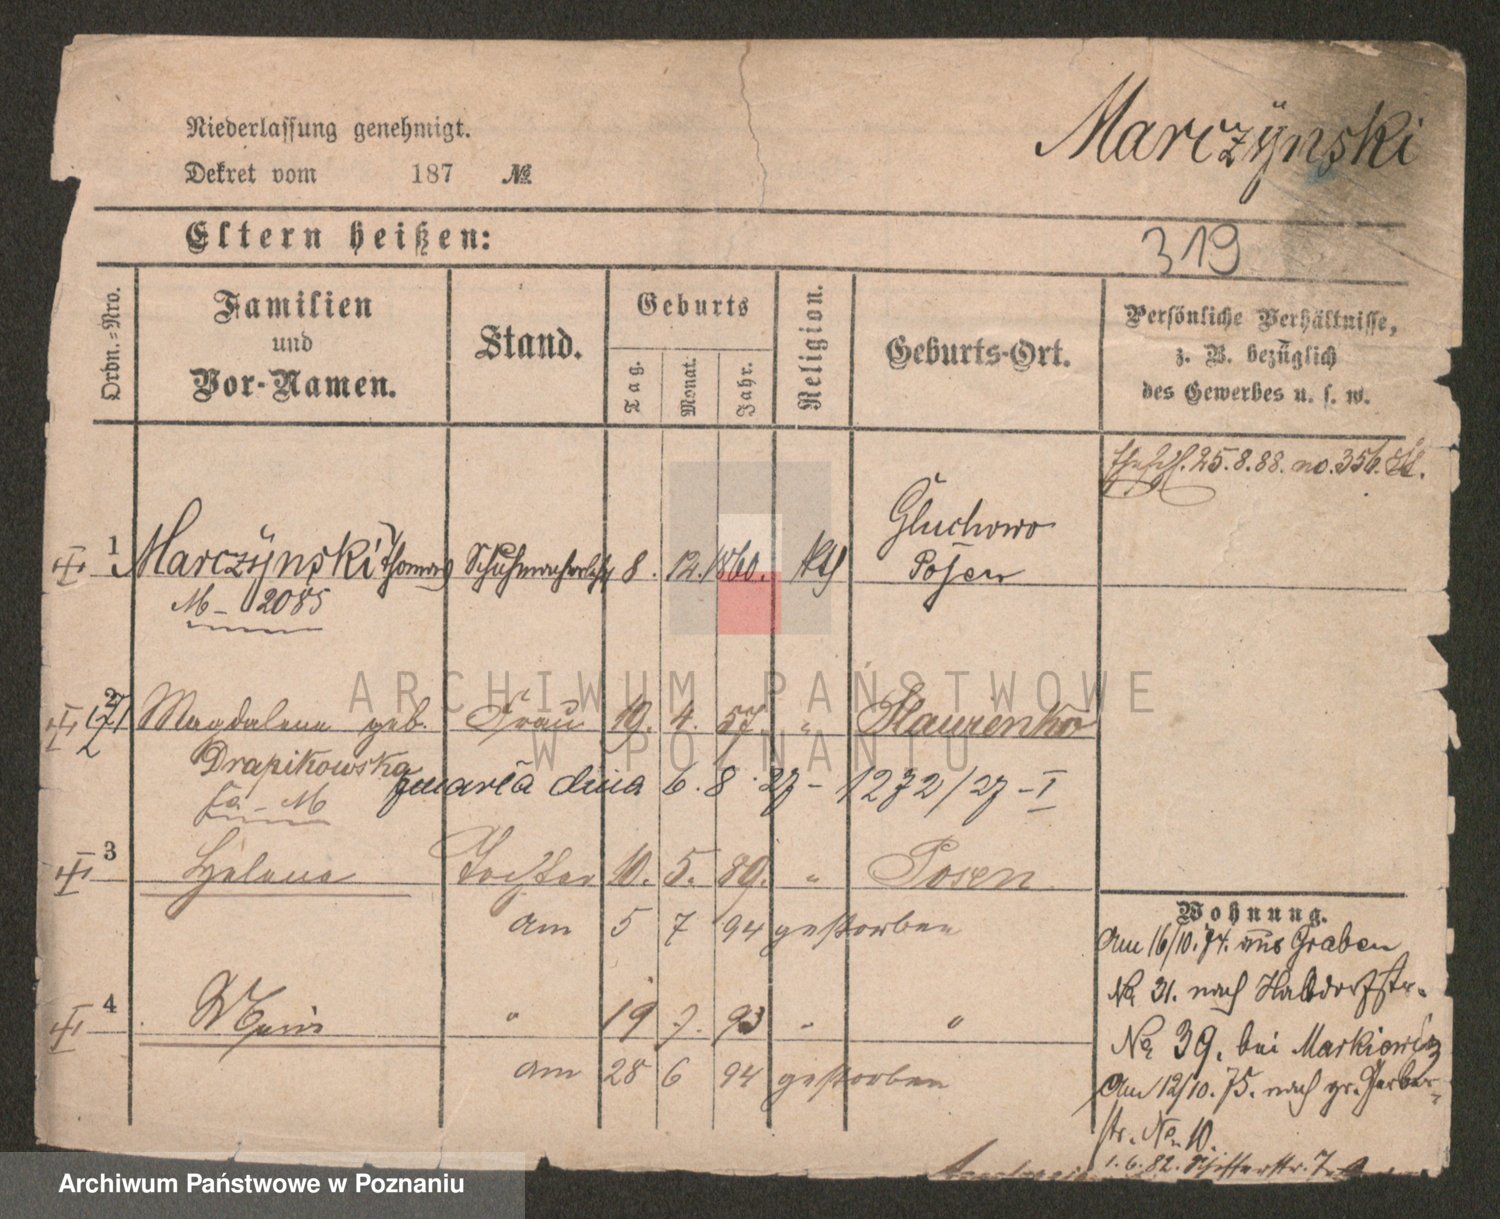 Niederlassung genehmigt.
Marczÿnski
Dekret vom 187 №
Eltern heißen:
319
Ordn.-Nro.
Familien
und
Vor-Namen.
Stand.
Geburts
Tag.
Monat.
Jahr.
Religion.
Geburts-Ort.
Persönliche Verhältnisse,
z. B. bezüglich
des Gewerbes u. s. w.
25.8.88. no. 356.
1 Marczÿnski Thomas 8. 12. 1860. kth Gluchowo
Posen
M – 2085
2 Magdalena geb. Frau 19. 4. 57. "
Drapikowska
zmarła dnia 6. 8. 27 – 1272/27 – I
Fa – M
3 Helena Tochter 10. 5. 89. " Posen
am 5 7 94 gestorben
4 " 19 7. 93 " "
am 28 6 94 gestorben
Wohnung.
Am 16/10. 74. aus Graben
No 31. nach Halbdorfstr.
No 39. bei Markiewicz
Am 12/10. 75. nach gr. Gerber-
str. No 10.
1.6.82. Schifferstr. 7
ARCHIWUM PAŃSTWOWE
W POZNANIU
Archiwum Państwowe w Poznaniu